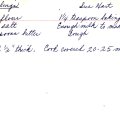 Sue Hart
flour
1¼ teaspoon baking
salt
Enough milk to make
butter
dough
½" thick. Cook covered 20-25 m